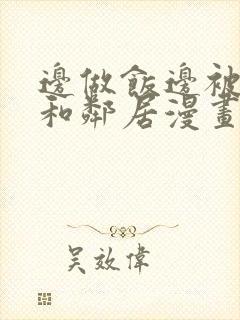 邊做飯邊被
和鄰居漫畫
吴效偉